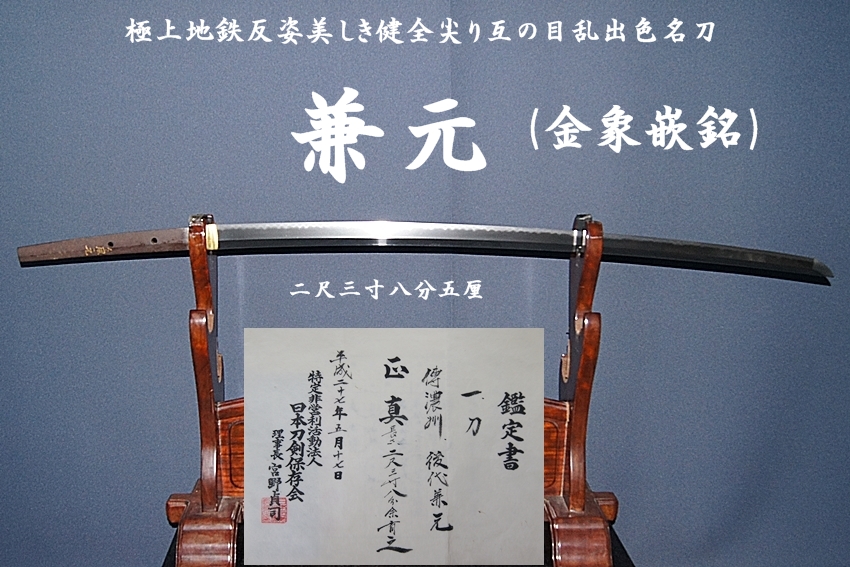 極上地鉄反姿美しき健全尖り互の目乱出色名刀
兼元
(金象嵌銘)
二尺三寸八分五厘
鑑定書
一、刀
傳濃州 後代兼元
正真 長さ二尺三寸八分余有之
平成二十七年五月十七日
特定非営利活動法人
日本刀剣保存会
理事長 宮野貞司